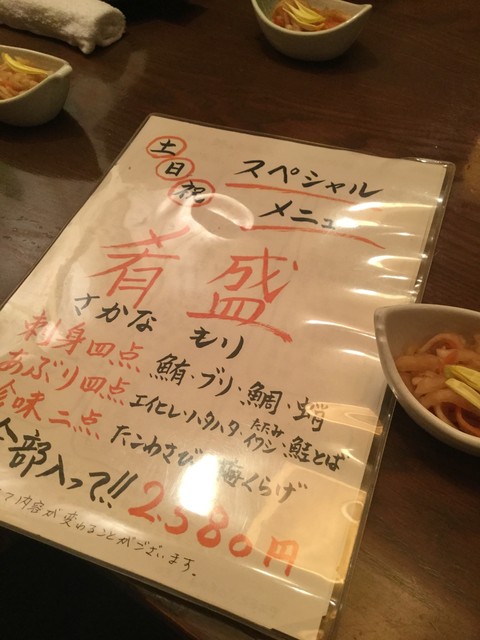 土日祝
スペシャル
メニュー
肴盛
さかな もり
刺身四点 鮪・ブリ・鯛・蛸
あぶり四点 エイヒレ・ハタハタ・たたみイワシ・鮭とば
珍味二点 たこわさび 梅くらげ
全部入って!! 2,580円
内容が変わることがございます。